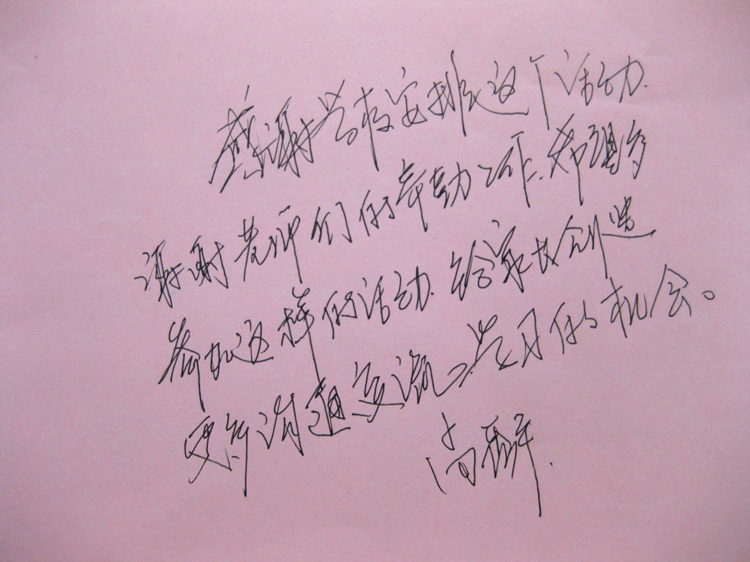 感谢学校安排这个活动.
谢谢老师们的辛勤工作.希望多
参加这样的活动.给家长创造
更多沟通交流、学习的机会。
尚